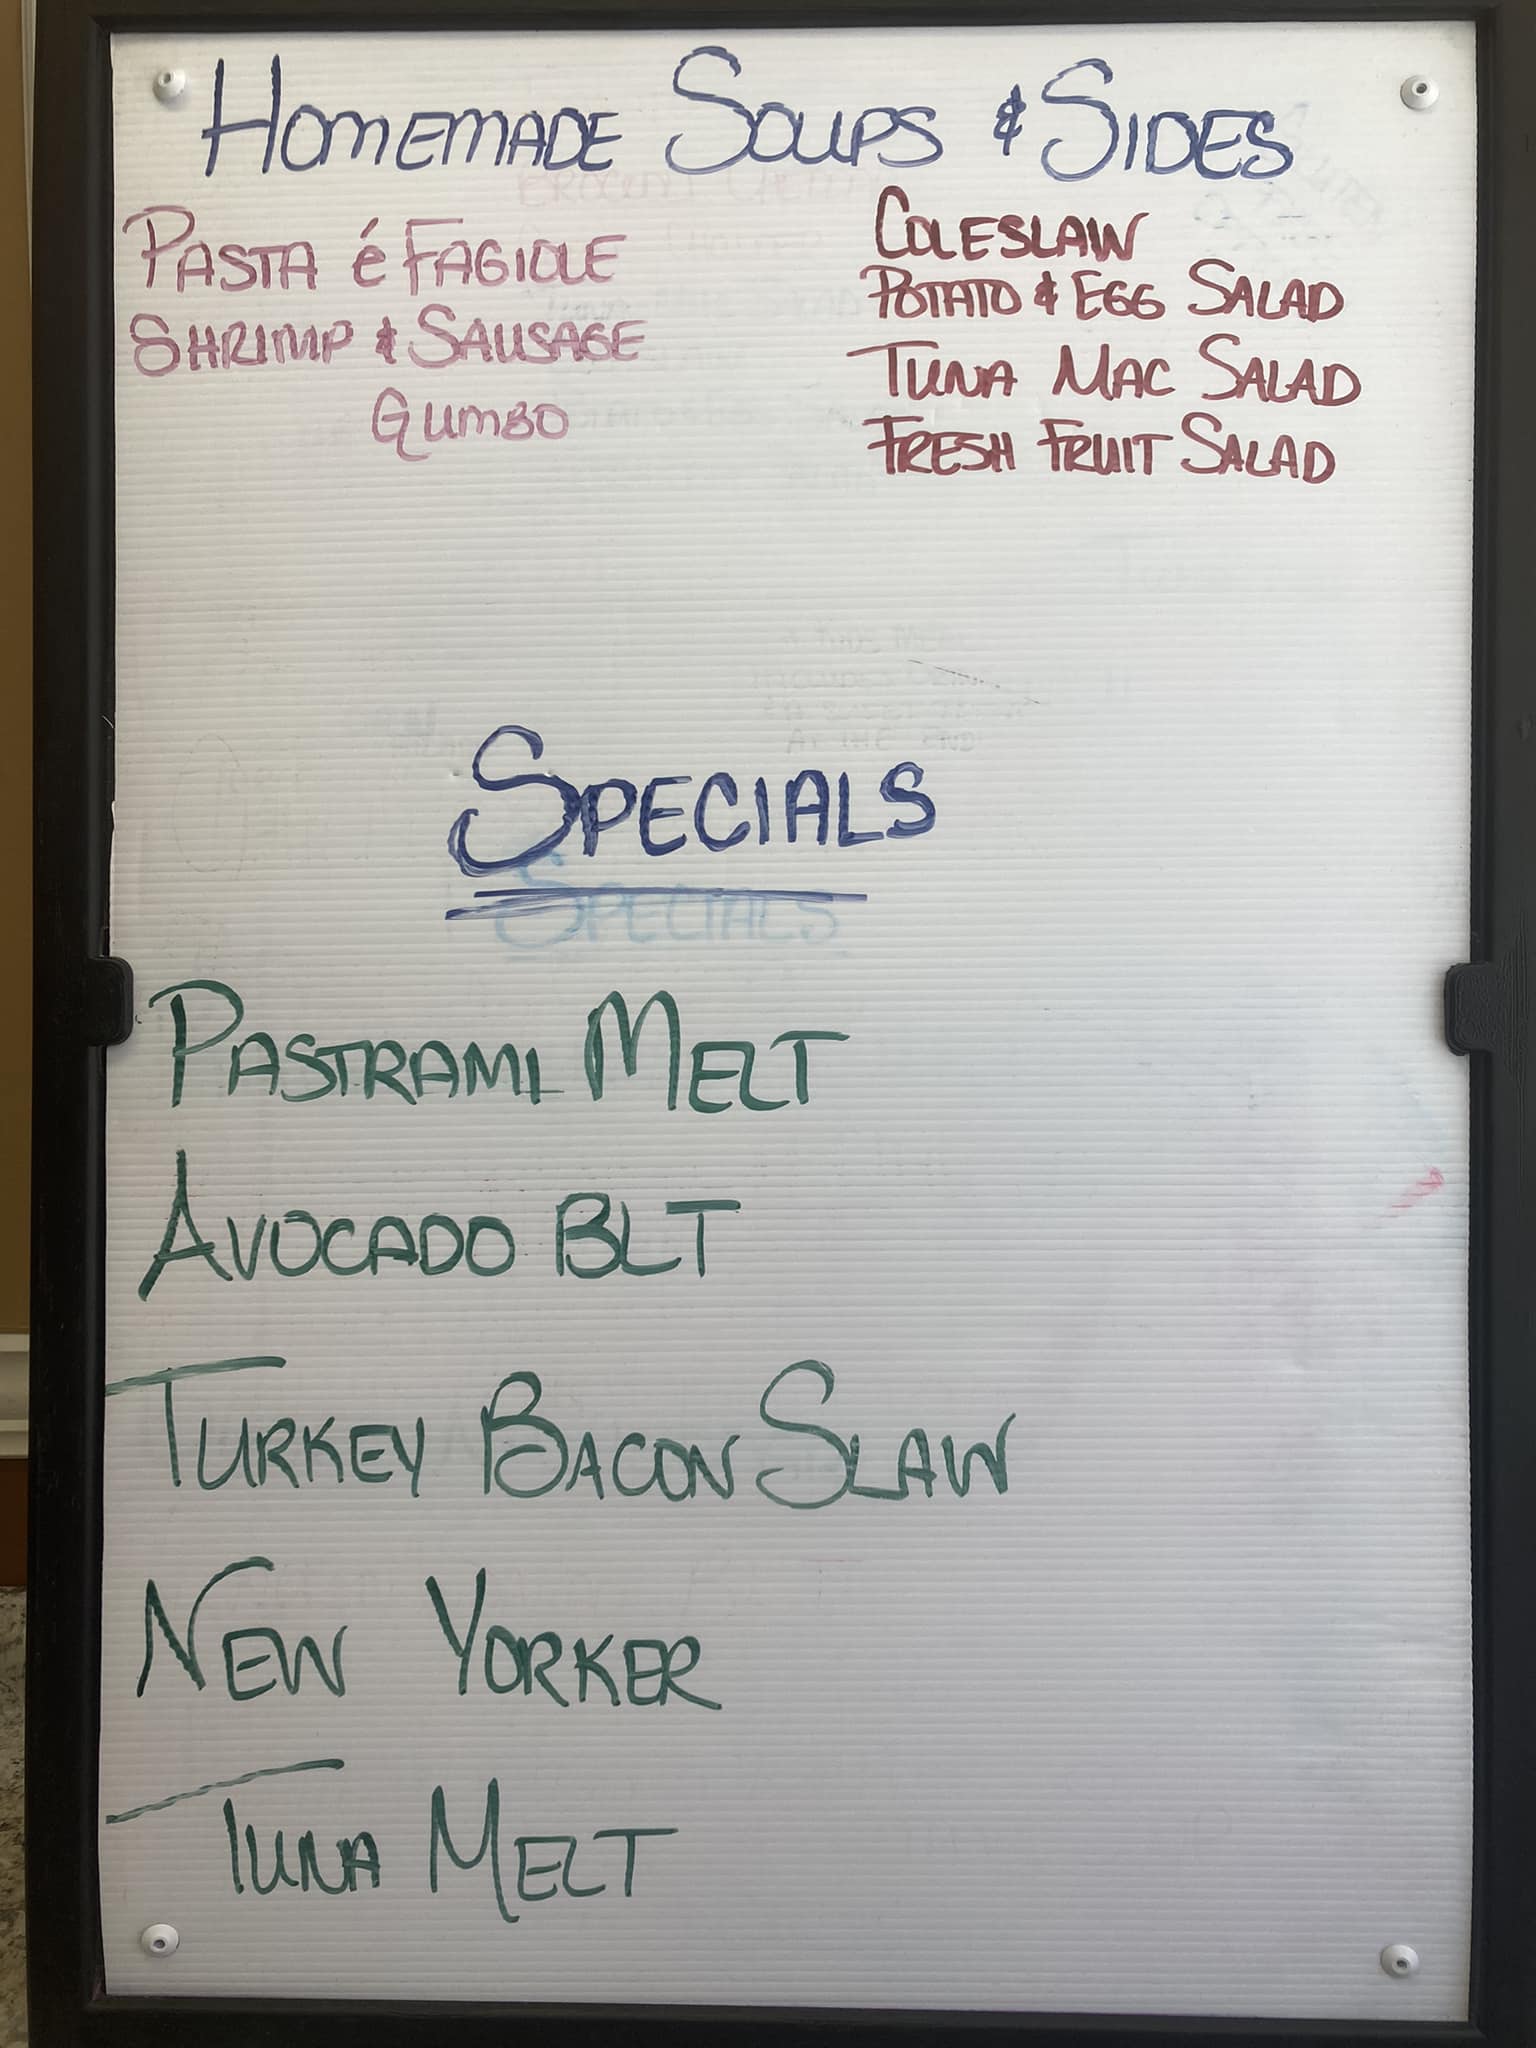 HOMEMADE SOUPS & SIDES
PASTA é FAGIOLE
SHRIMP & SAUSAGE
GUMBO
COLESLAW
POTATO & EGG SALAD
TUNA MAC SALAD
FRESH FRUIT SALAD
SPECIALS
SPECIALS
PASTRAMI MELT
AVOCADO BLT
TURKEY BACON SLAW
NEW YORKER
TUNA MELT